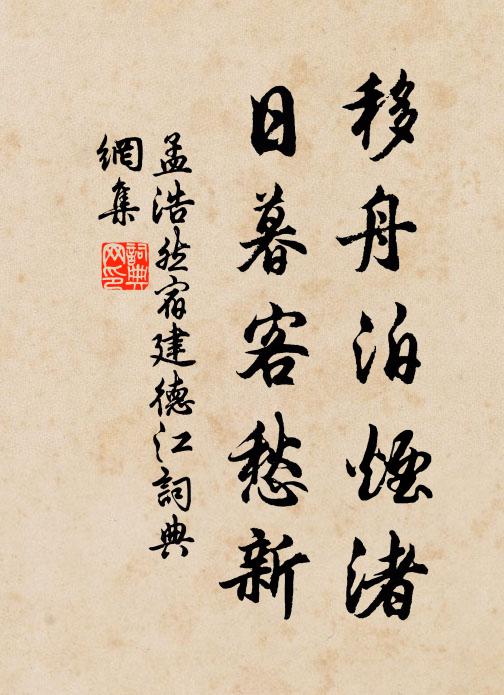 移舟泊煙渚
日暮客愁新
孟浩然宿建德江詞典
網集
詞典
网印